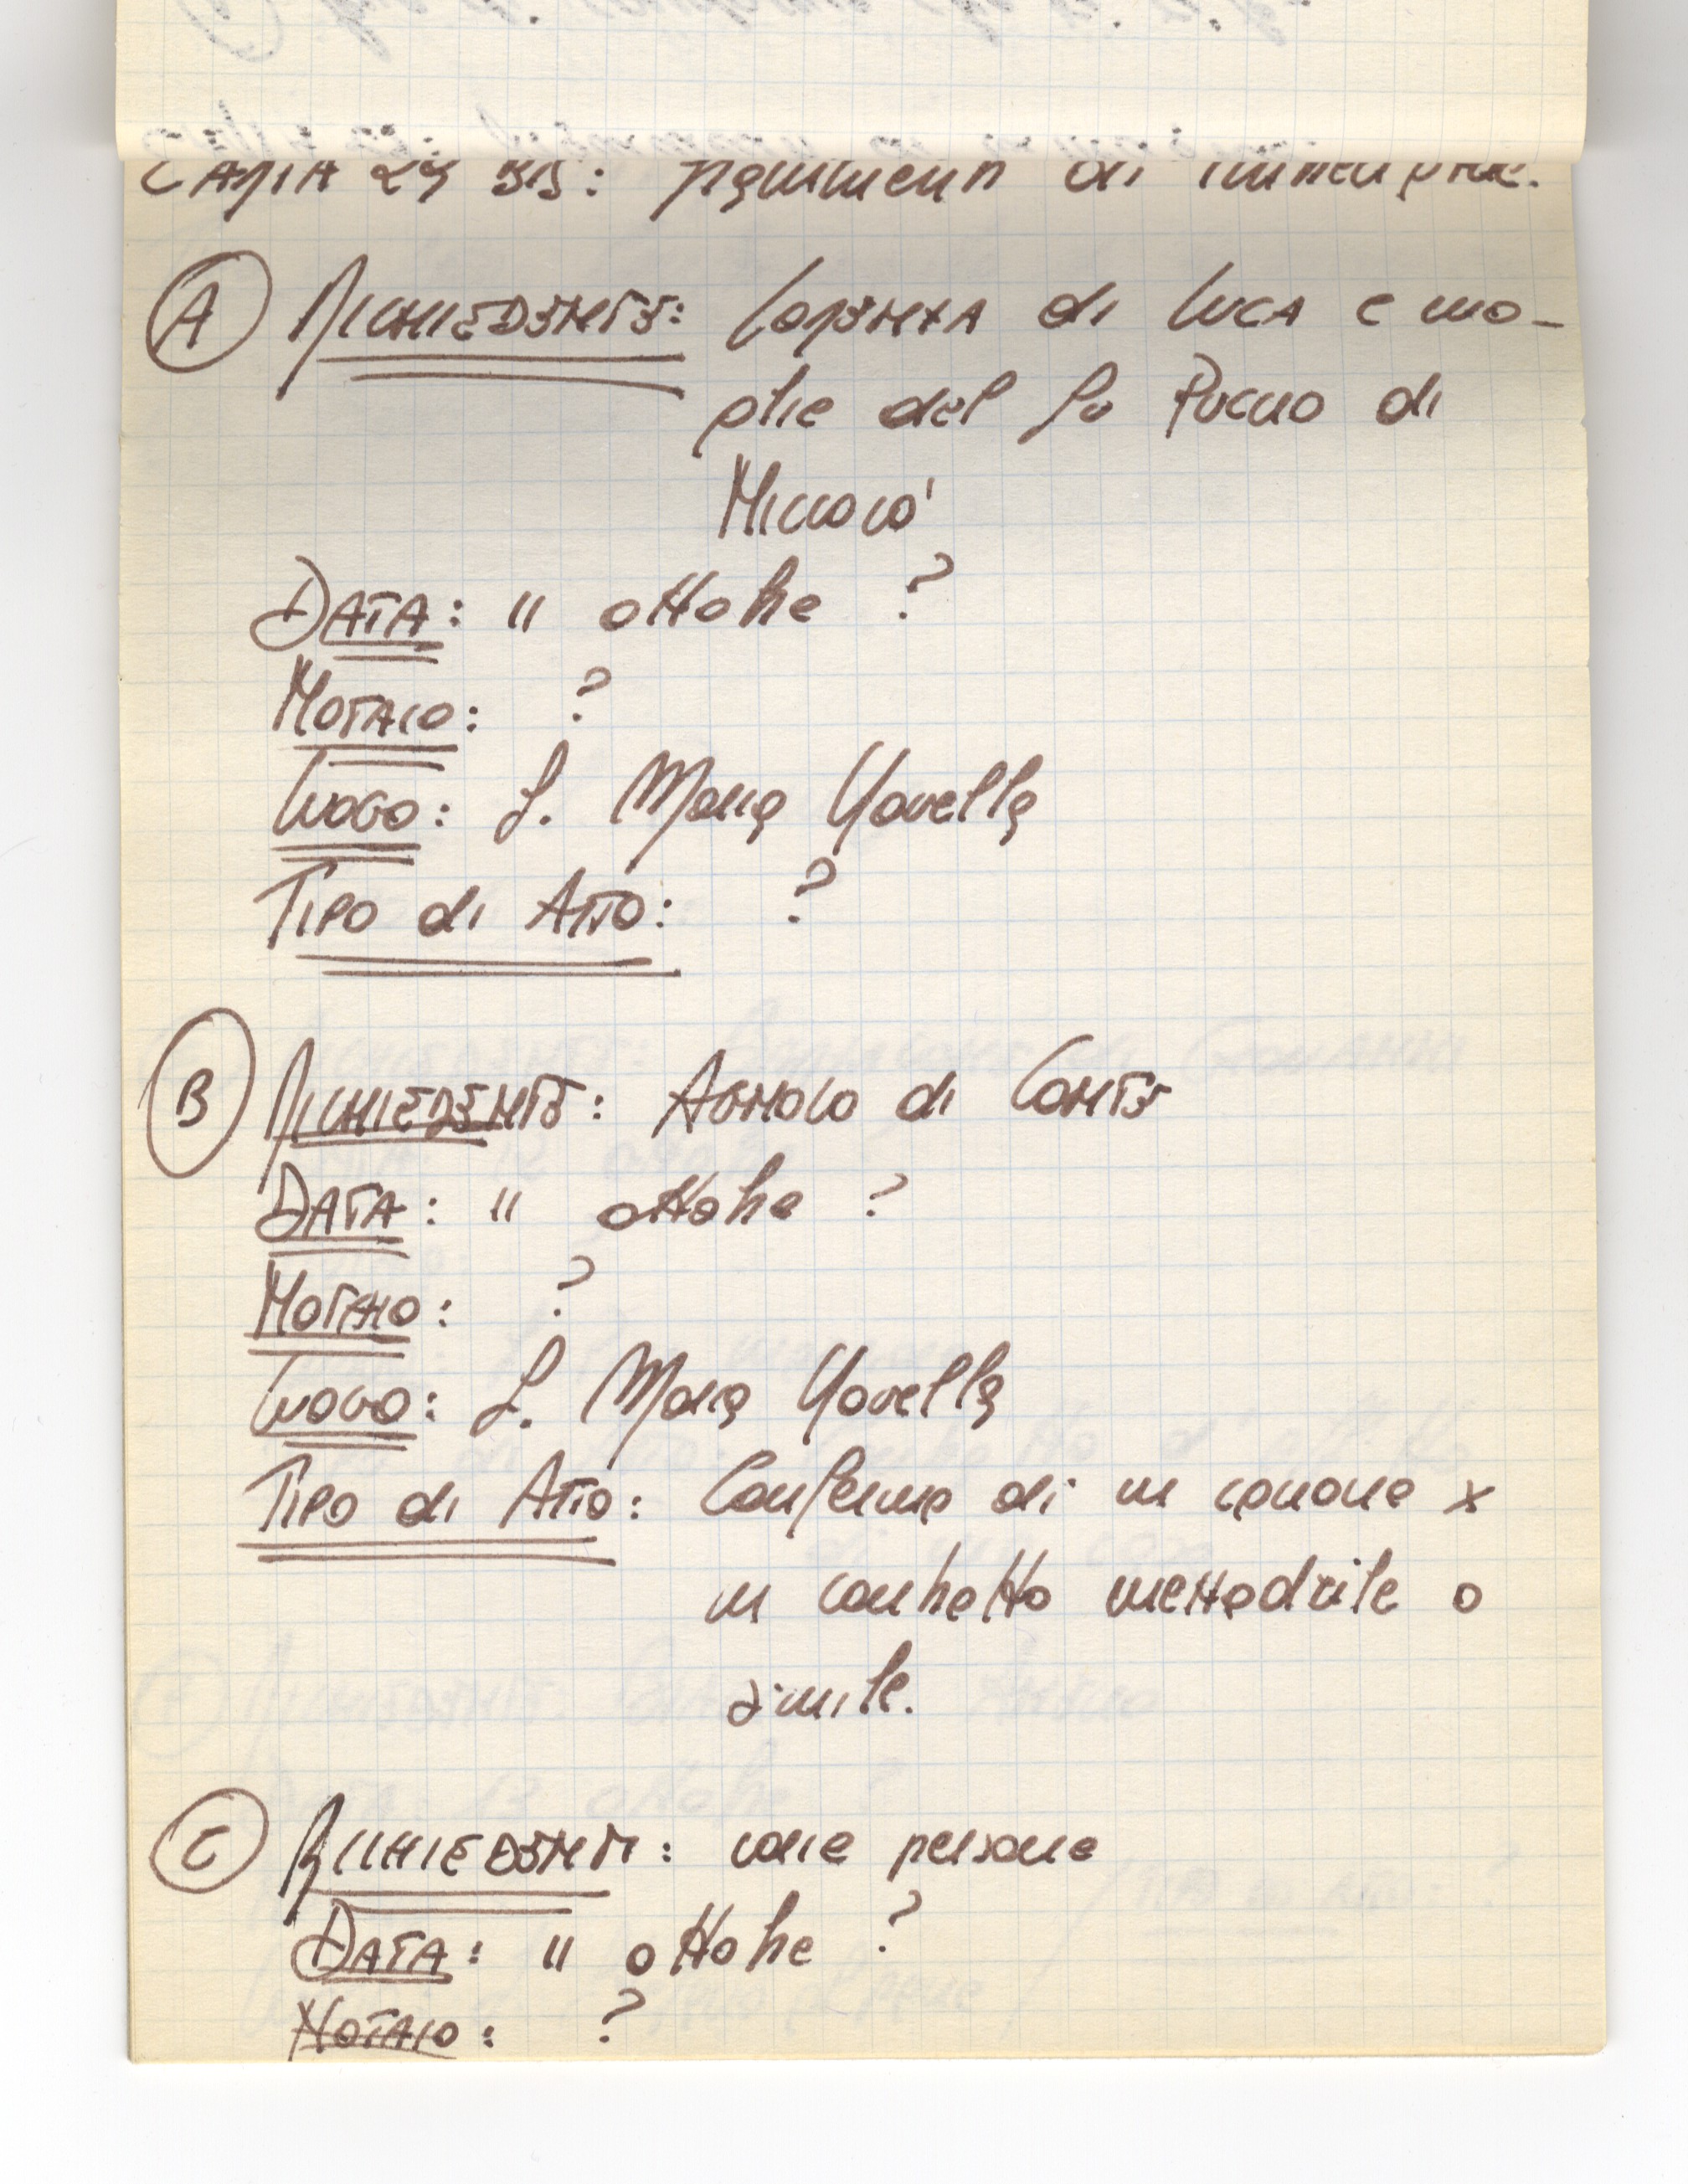 CARTA 29 BIS: di
A RICHIEDENTE: LORENZA di LUCA e mo-
glie del fu PUCCIO di
NICCOLO'
DATA: 11 ottobre ?
NOTAIO: ?
LUOGO: S. Maria Novella
TIPO di ATTO: ?
B RICHIEDENTE: AGNOLO di CONTE
DATA: 11 ottobre ?
NOTAIO: ?
LUOGO: S. Maria Novella
TIPO di ATTO: Conferma di un canone x
un contratto mezzadrile o
simile.
C RICHIEDENTI: varie persone
DATA: 11 ottobre ?
NOTAIO: ?